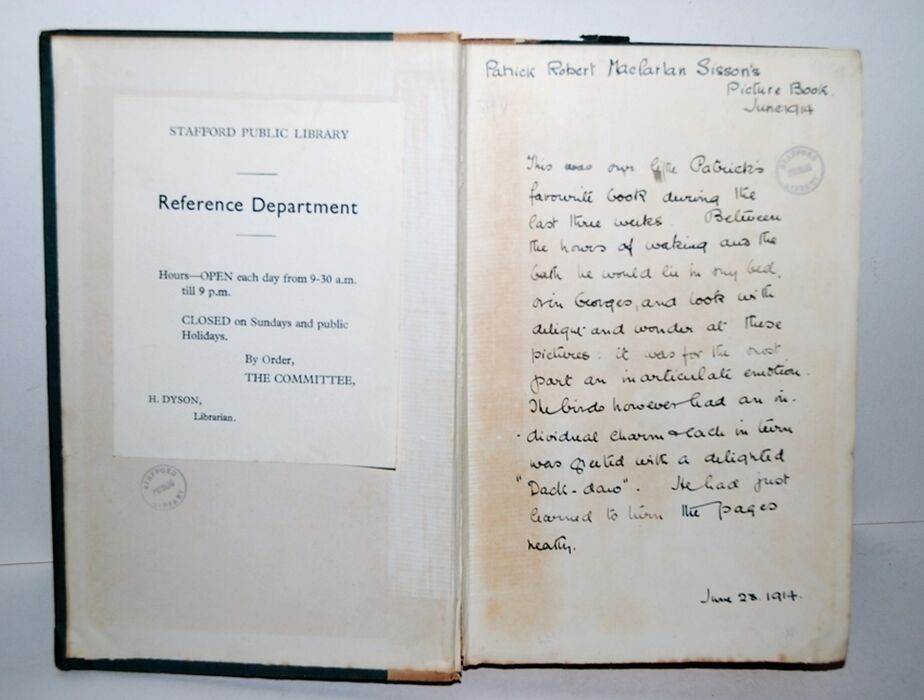 STAFFORD PUBLIC LIBRARY
Reference Department
Hours—OPEN each day from 9-30 a.m.
till 9 p.m.
CLOSED on Sundays and public
Holidays.
By Order,
THE COMMITTEE,
H. DYSON,
Librarian.
STAFFORD
PUBLIC
LIBRARY
Patrick Robert Macfarlan Sisson's
Picture Book.
June 1914
STAFFORD
PUBLIC
LIBRARY
This was our little Patrick's
favourite book during the
last three weeks. Between
the hours of waking and the
bath he would lie in my bed,
Georges, and look with
delight and wonder at these
pictures: it was for the most
part an inarticulate emotion.
The birds however had an in-
dividual charm & each in turn
was greeted with a delighted
"Dack-daw". He had just
learned to turn the pages
neatly.
June 1914.